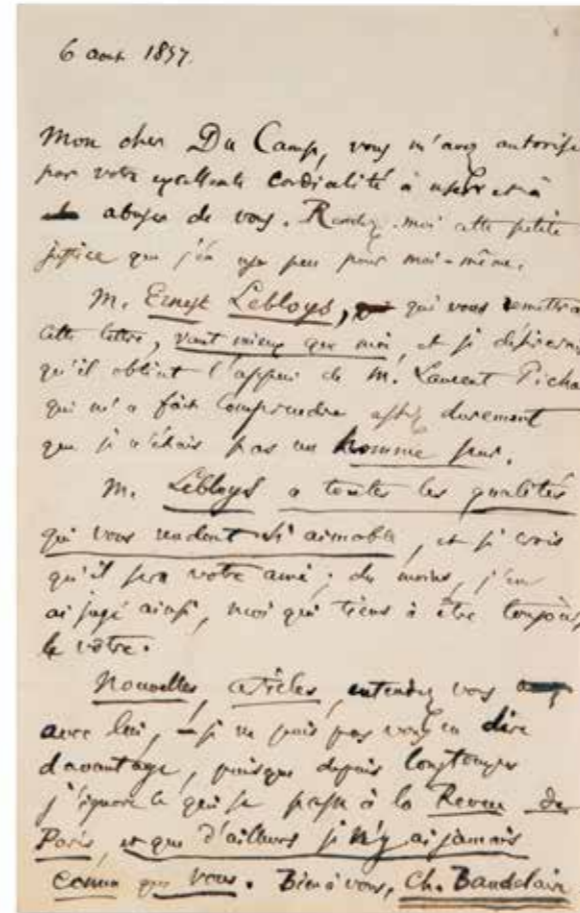 6 août 1857.
Mon cher Du Camp, vous m'avez autorisé
par votre excellente cordialité à user et à
abuser de vous. Rendez-moi cette petite
justice que j'en use peu pour moi-même.
M. Ernest Lebloys, qui vous remettra
cette lettre, vaut mieux que moi, et je désirerais
qu'il obtînt l'appui de M. Laurent Picha
qui m'a fait comprendre assez durement
que je n'étais pas un homme pur.
M. Lebloys a toutes les qualités
qui vous rendent si aimable, et je crois
qu'il sera votre ami; du moins, j'en
ai jugé ainsi, moi qui tiens à être toujours
le vôtre.
Nouvelles, articles, entendez vous
avec lui, – je ne puis pas vous en dire
davantage, puisque depuis longtemps
j'ignore ce qui se passe à la Revue de
Paris, et que d'ailleurs je n'y ai jamais
connu que vous. Bien à vous, Ch. Baudelaire